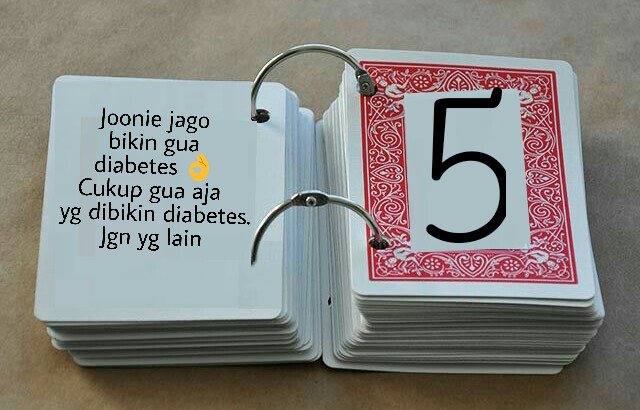 Joonie jago
bikin gua
diabetes 👌
Cukup gua aja
yg dibikin diabetes.
Jgn yg lain
5